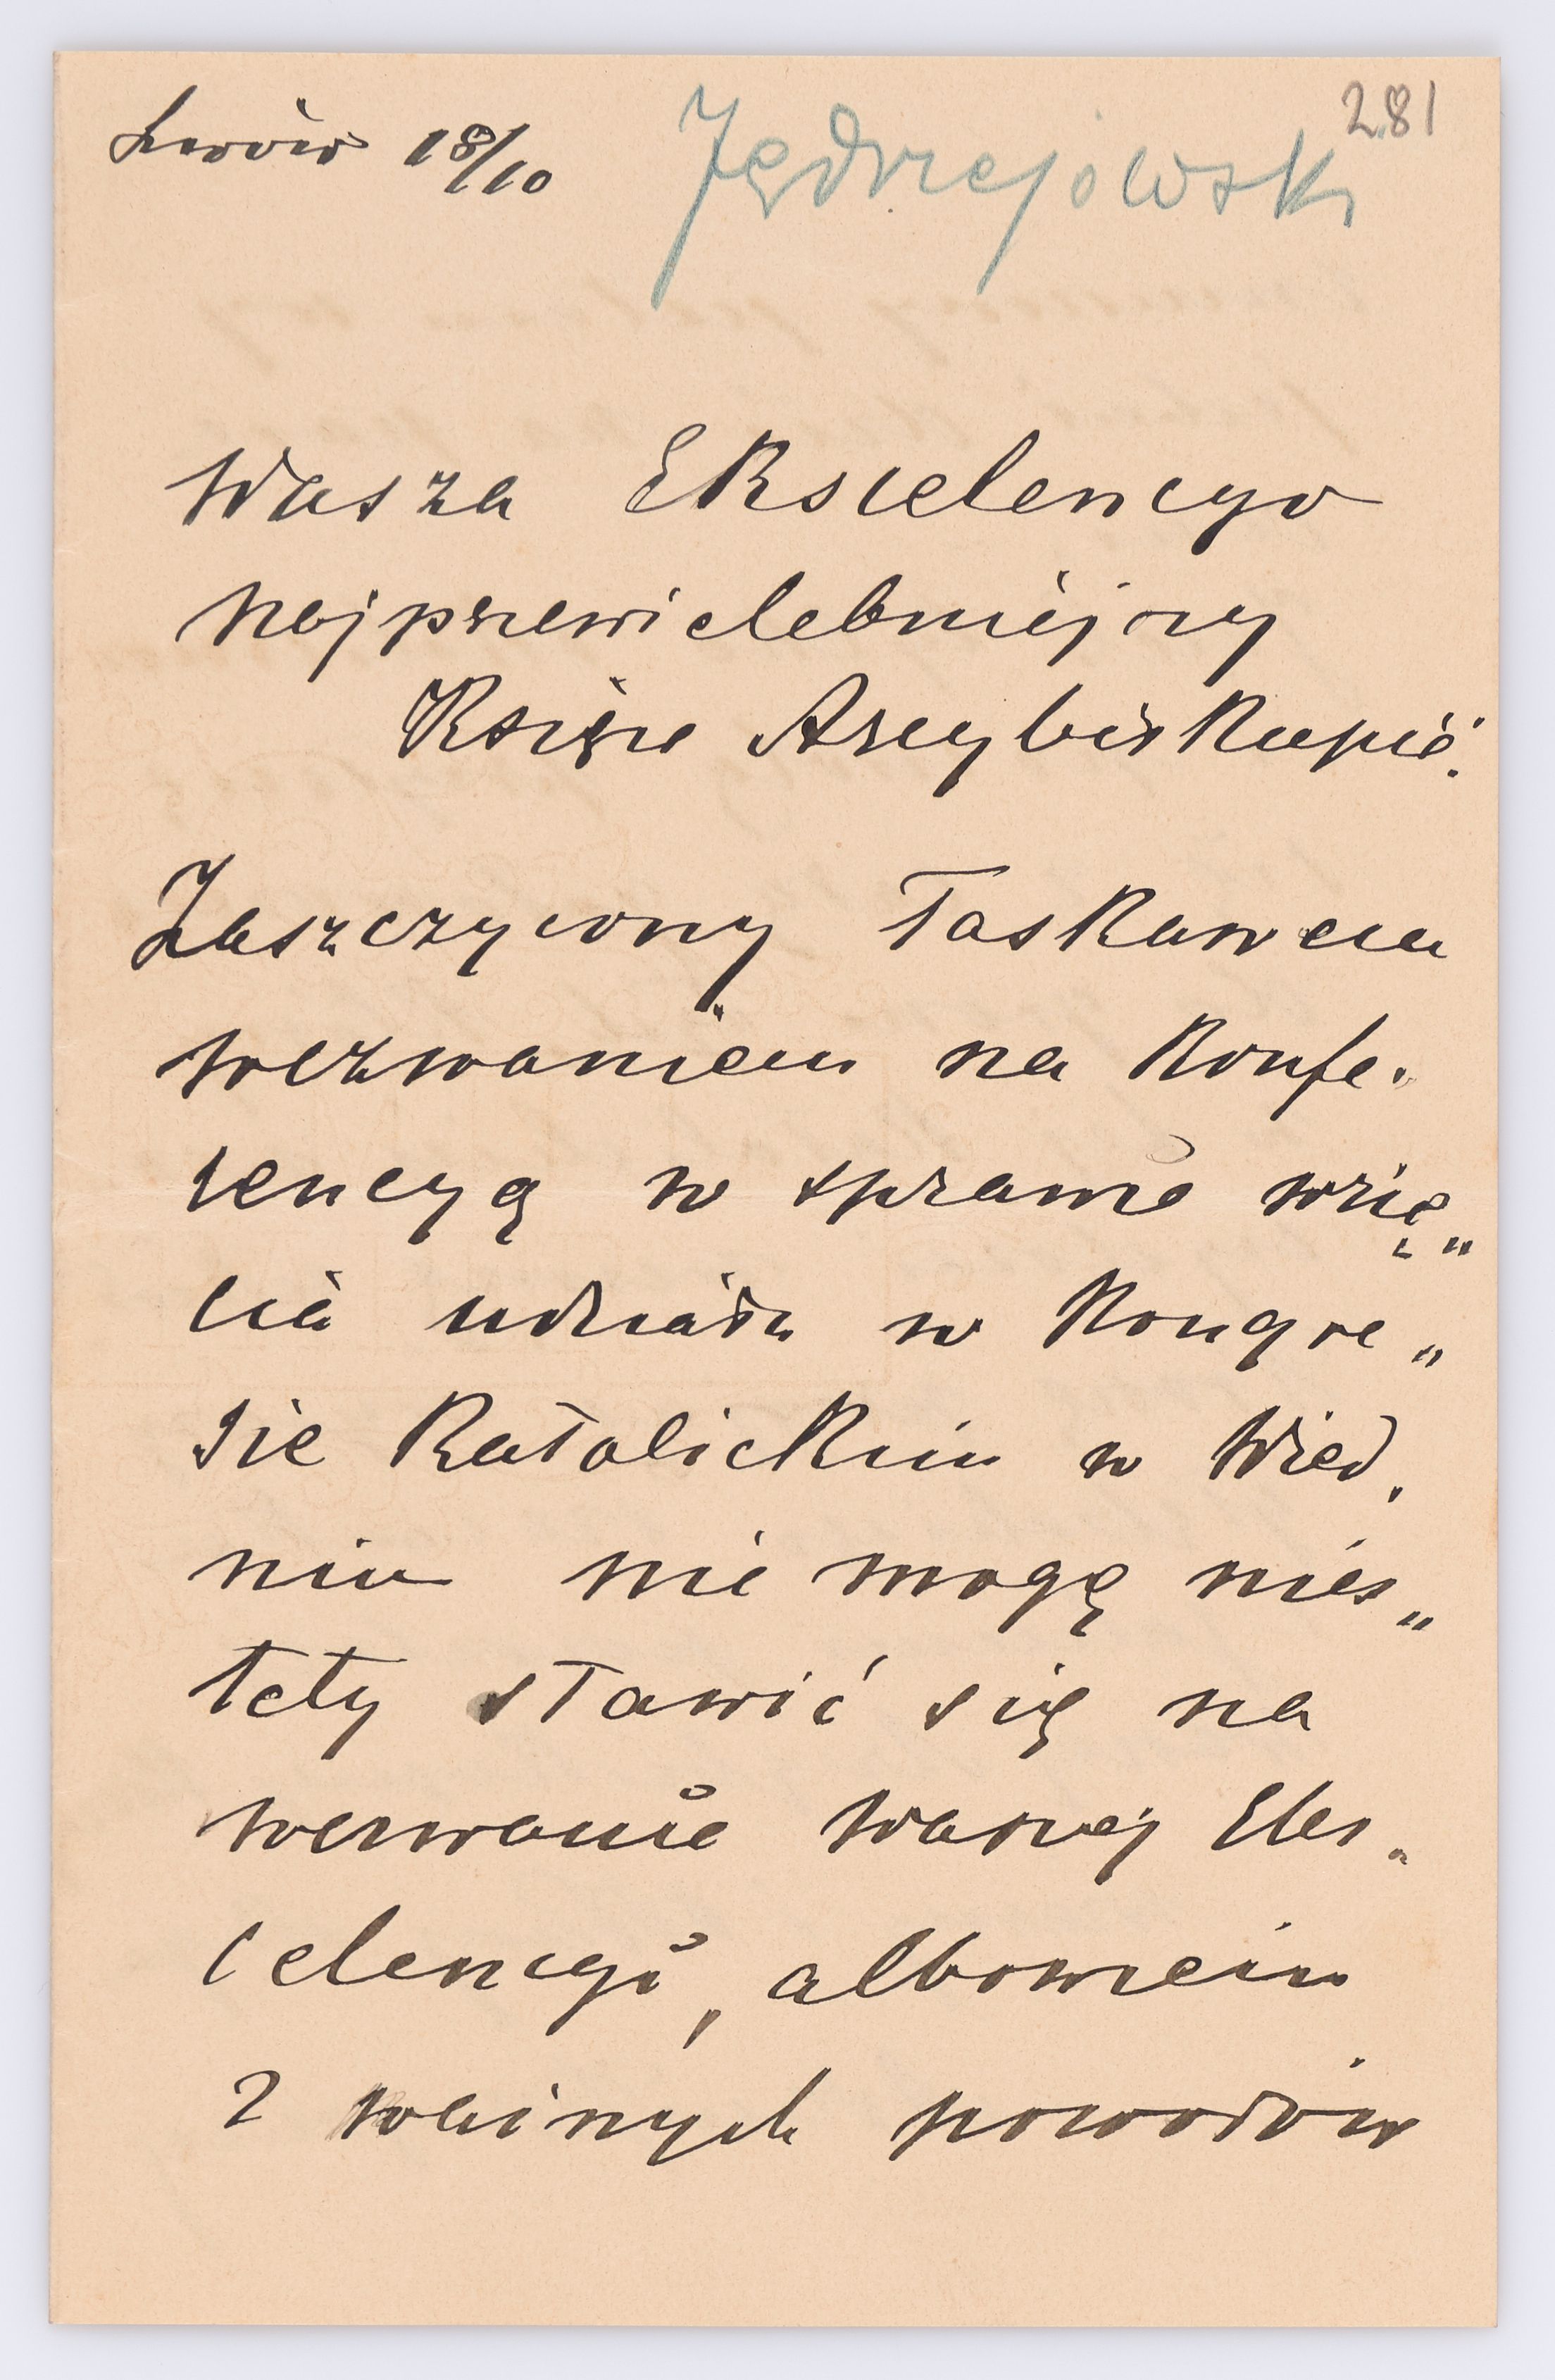 Lwów 18/10 Jędrzejowski 281
Wasza Ekscelencyo
Najprzewielebniejszy
Księże Arcybiskupie.
Zaszczycony łaskawem
wezwaniem na Konfe-
rencyą w sprawie wzię„
cia udziału w Kongre„
sie Katolickim w Wied-
niu nie mogę nies„
tety stawić się na
wezwanie Waszej Eks-
celencyi, albowiem
z ważnych powodów